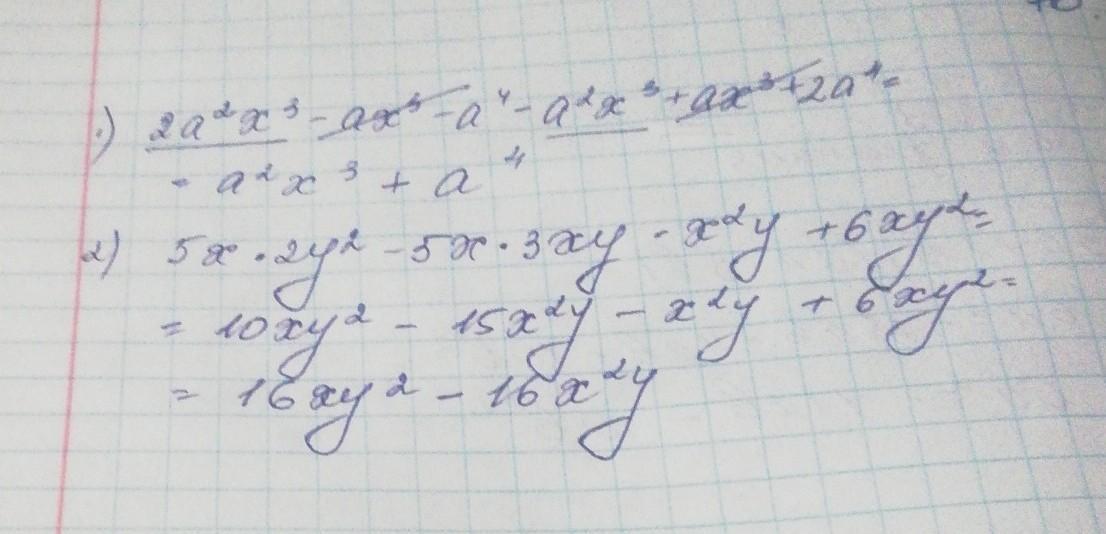 1) 2a²x³ - ax³ - a⁴ - a²x³ + ax³ + 2a⁴ =
= a²x³ + a⁴
2) 5x · 2y² - 5x · 3xy - x²y + 6xy² =
= 10xy² - 15x²y - x²y + 6xy² =
= 16xy² - 16x²y